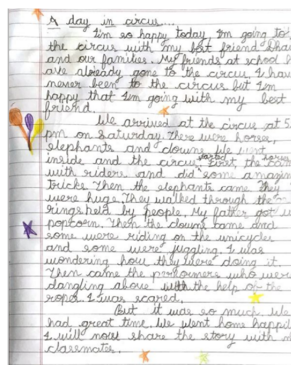 A day in circus...
I'm so happy today. I'm going to
the circus with my best friend
and our families. My friends at school
are already gone to the circus. I have
never been to the circus but I'm
happy that I'm going with my best
friend.
We arrived at the circus at 5
pm on Saturday. There were horse,
elephants and clowns. We went
inside and the circus started. First the
with riders and did some amazing
tricks. Then the elephants came they
were huge. They walked through the
rings held by people. My father got us
popcorn. Then the clowns came and
some were riding on the unicycles
and some were juggling. I was
wondering how they were doing it.
Then came the performers who were
dangling above with the help of the
ropes. I was scared.
But it was so much. We
had great time. We went home happily.
I will now share the story with my
classmates.